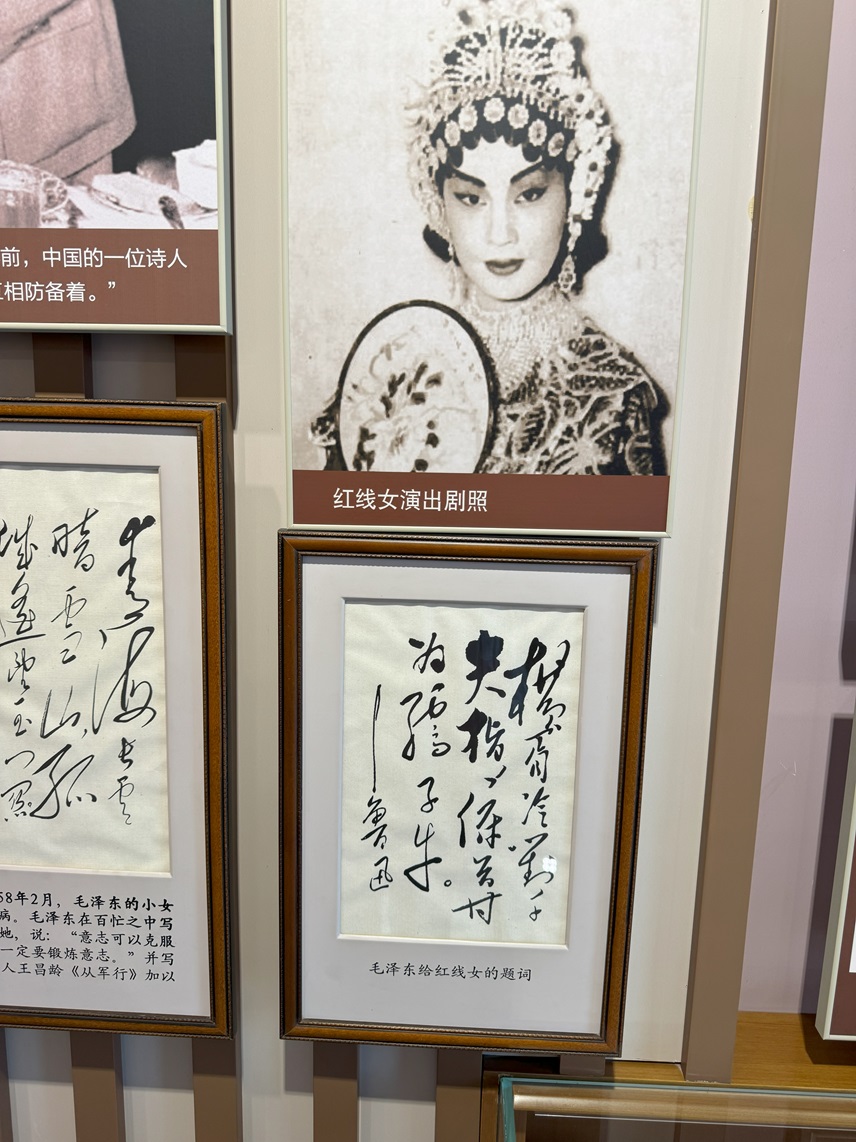 前，中国的一位诗人
互相防备着。”
红线女演出剧照
青海长雲
暗雪山，孤
城遥望玉门關
58年2月，毛泽东的小女
病。毛泽东在百忙之中写
她，说：“意志可以克服
一定要锻炼意志。”并写
人王昌龄《从军行》加以
橫眉冷對千
夫指、俯首甘
为孺子牛。
——鲁迅
毛泽东给红线女的题词